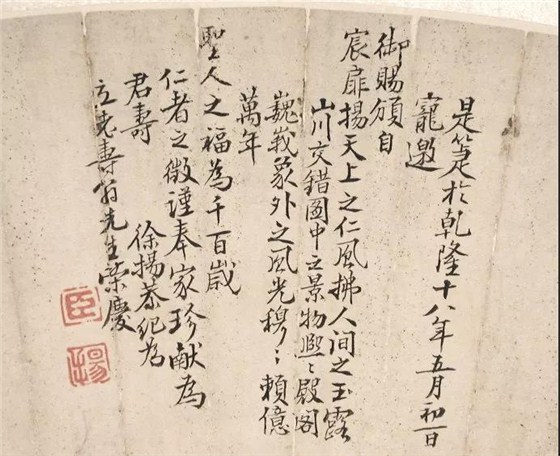 是箑於乾隆十八年五月初一日
寵邀
御賜頒自
宸扉揚天上之仁風拂人间之玉露
山川交錯圖中之景物熙〻殿阁
巍峩象外之風光穆〻賴億
萬年
聖人之福為千百歲
仁者之徵谨奉家珍献為
君壽
徐揚恭紀為
立老壽翁先生榮慶
臣
揚